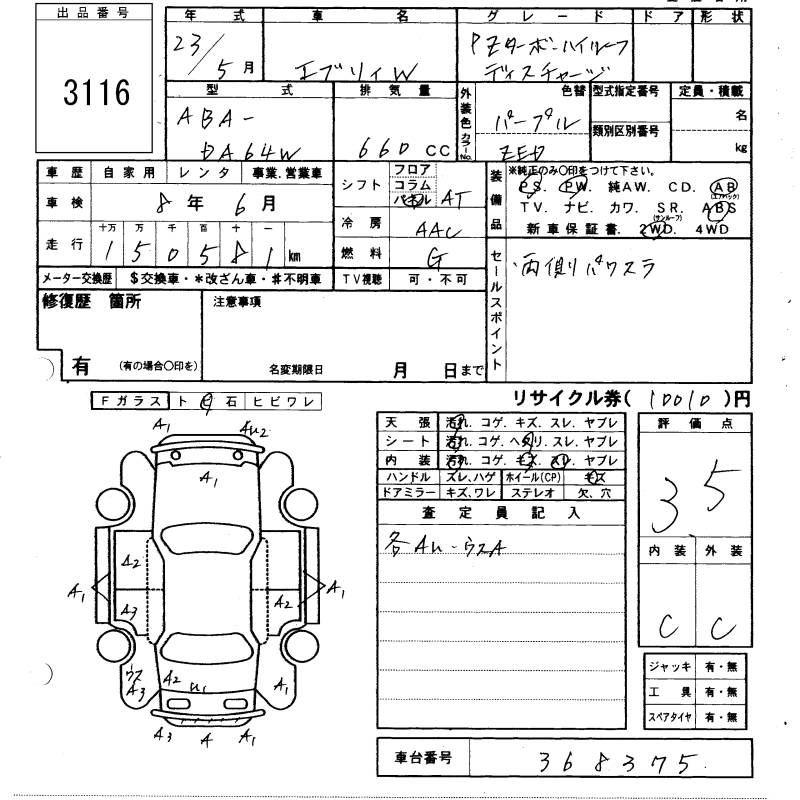 出品番号
3116
年式 車名 グレード ドア 形状
23/5月 エブリイW PZターボハイルーフ
ディスチャージ
型式 排気量 外装色 色替 型式指定番号 定員・積載
ABA- 660CC パープル 名
DA64W カラーNo. ZED 類別区別番号 kg
車歴 自家用 レンタ 事業.営業車
車検 8年 6月
走行 十万 万 千 百 十 一
150581 km
メーター交換歴 $交換車・*改ざん車・#不明車
シフト フロア
コラム
パネル AT
冷房 AAC
燃料 G
TV視聴 可・不可
装備品 ※純正のみ〇印をつけて下さい。
PS. PW. 純AW. CD. AB(エアバック)
TV. ナビ. カワ. SR.(サンルーフ) ABS
新車保証書. 2WD. 4WD
セールスポイント
・両側パワスラ
修復歴 箇所
有 (有の場合〇印を)
注意事項
名変期限日 月 日まで
リサイクル券(10010)円
Fガラス ト 石 ヒビワレ
A1 AU2
A1
A2
A1 A3 A2 A1
ウス A3 A2 U1 A1
A3 A A1
天張 汚れ. コゲ. キズ. スレ. ヤブレ
シート 汚れ. コゲ. ヘタリ. スレ. ヤブレ
内装 汚れ. コゲ. キズ. スレ. ヤブレ
ハンドル ズレ、ハゲ ホイール(CP) キズ
ドアミラー キズ、ワレ ステレオ 欠、穴
査定員記入
各AU-ウスA
評価点
3.5
内装 外装
C C
ジャッキ 有・無
工具 有・無
スペアタイヤ 有・無
車台番号 368375